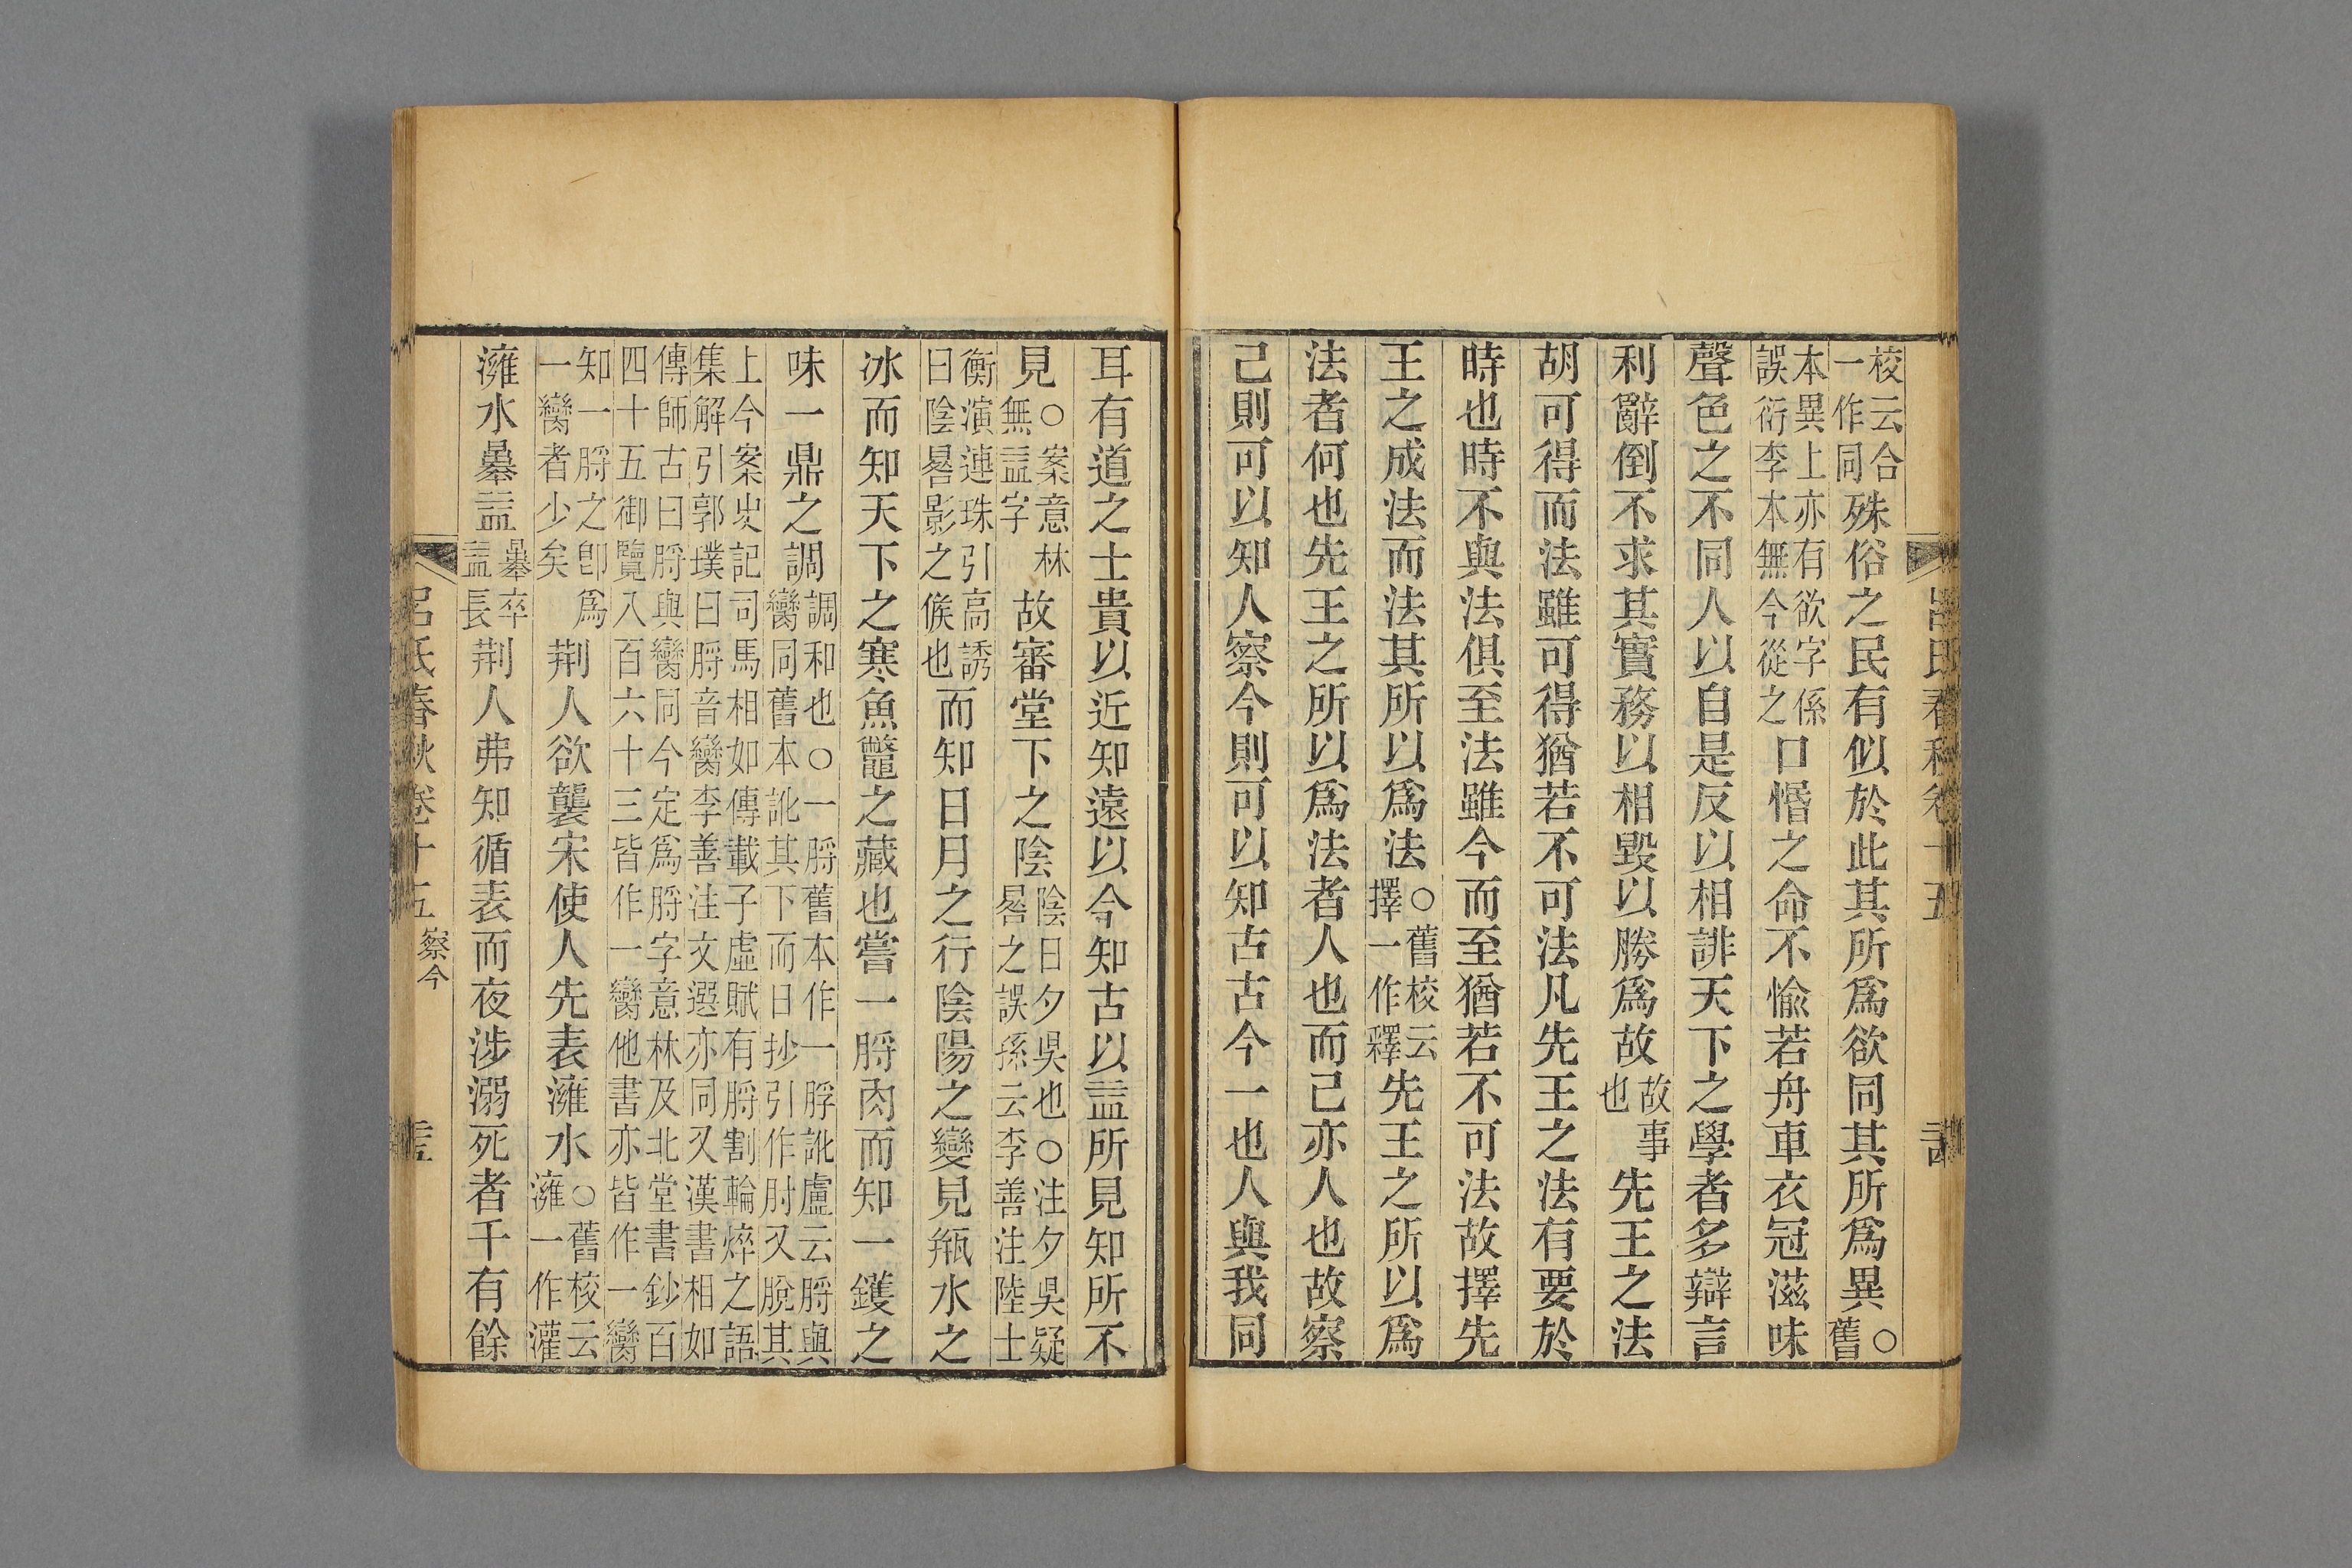 校云合一作同殊俗之民有似於此其所爲欲同其所爲異○舊
本異上亦有欲字係誤衍李本無今從之口惛之命不愉若舟車衣冠滋味
聲色之不同人以自是反以相誹天下之學者多辯言
利辭倒不求其實務以相毀以勝爲故故事也先王之法
胡可得而法雖可得猶若不可法凡先王之法有要於
時也時不與法俱至法雖今而至猶若不可法故擇先
王之成法而法其所以爲法○舊校云擇一作釋先王之所以爲
法者何也先王之所以爲法者人也而己亦人也故察
己則可以知人察今則可以知古古今一也人與我同
耳有道之士貴以近知遠以今知古以益所見知所不
見○案意林無益字故審堂下之陰陰日夕昃也○注夕昃疑晷之誤孫云李善注陸士
衡演連珠引高誘曰陰晷影之候也而知日月之行陰陽之變見瓶水之
冰而知天下之寒魚鼈之藏也嘗一脟肉而知一鑊之
味一鼎之調調和也○一脟舊本作一脬訛盧云脟與臠同舊本訛其下而日抄引作肘又脫其
上今案史記司馬相如傳載子虛賦有脟割輪焠之語集解引郭璞曰脟音臠李善注文選亦同又漢書相如
傳師古曰脟與臠同今定爲脟字意林及北堂書鈔百四十五御覽八百六十三皆作一臠他書亦皆作一臠
知一脟之卽爲一臠者少矣荆人欲襲宋使人先表澭水○舊校云澭一作灌
澭水暴益暴卒益長荆人弗知循表而夜涉溺死者千有餘
呂氏春秋卷十五
察今